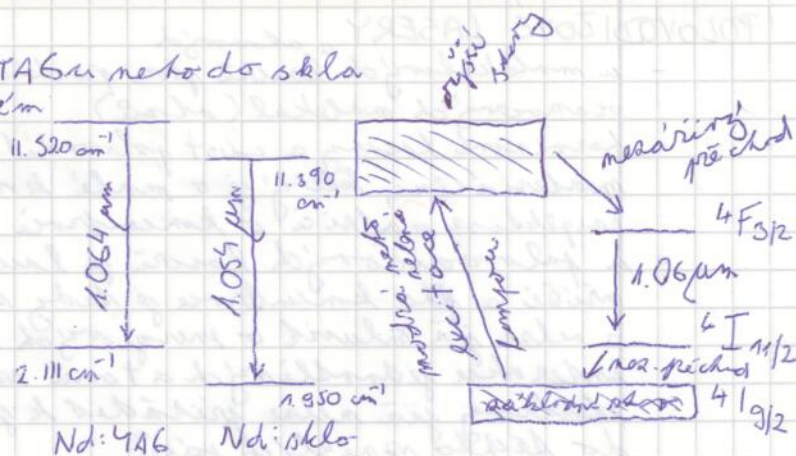 YAGu nebo do skla
11.520 cm⁻¹
1.064 μm
2.111 cm⁻¹
Nd:YAG
11.390 cm⁻¹
1.054 μm
1.950 cm⁻¹
Nd:sklo
vyšší
stavy
modrá nebo
zelená
excitace
lampou
nezářivý
přechod
⁴F3/2
1.06 μm
⁴I11/2
nez. přechod
základní stav
⁴I9/2